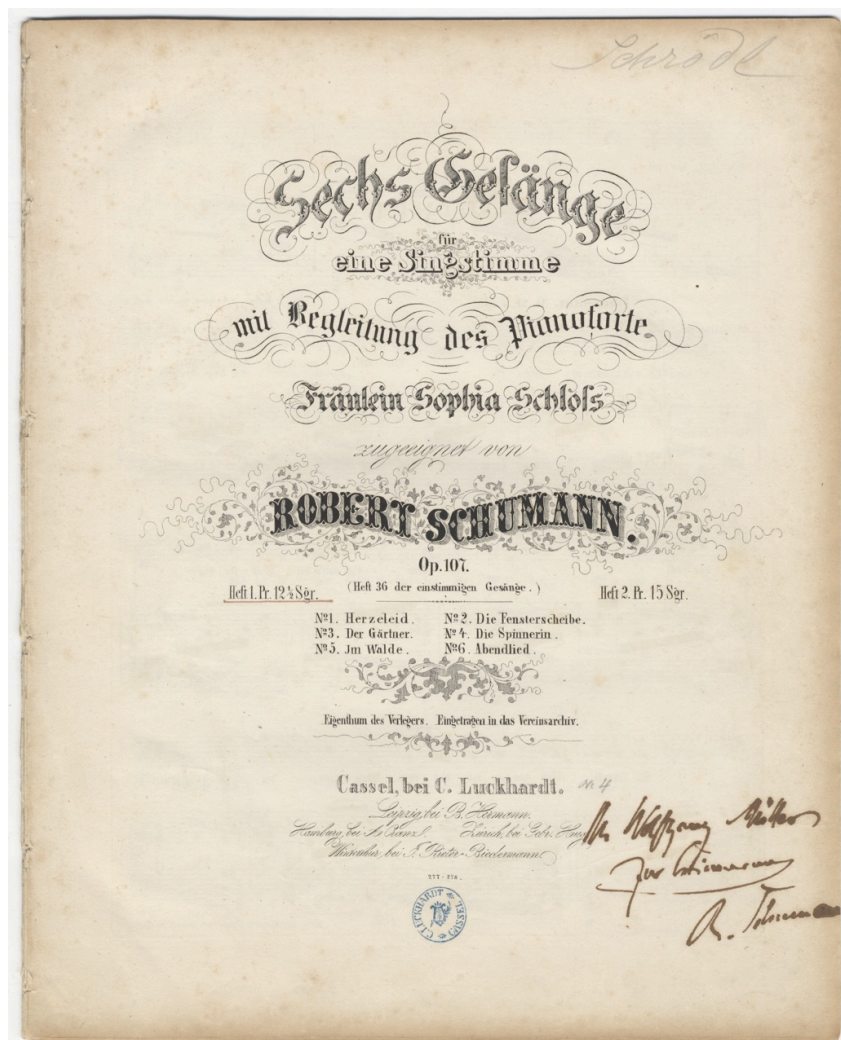 Schrödl
Sechs Gesänge
für
eine Singstimme
mit Begleitung des Pianoforte
Fräulein Sophia Schloſs
zugeeignet von
ROBERT SCHUMANN.
Op. 107.
Heft 1. Pr. 12½ Sgr. (Heft 36 der einstimmigen Gesänge.) Heft 2. Pr. 15 Sgr.
Nº1. Herzeleid. Nº2. Die Fensterscheibe.
Nº3. Der Gärtner. Nº4. Die Spinnerin.
Nº5. Jm Walde. Nº6. Abendlied.
Eigenthum des Verlegers. Eingetragen in das Vereinsarchiv.
Cassel, bei C. Luckhardt. No 4
Leipzig, bei B. Hermann.
Hamburg, bei A. Cranz. Zürich, bei Gebr. Hug
Winterthur, bei J. Rieter-Biedermann.
277-278.
C. LUCKHARDT CASSEL
Wolfgang Müller
zur Erinnerung
R. Schumann